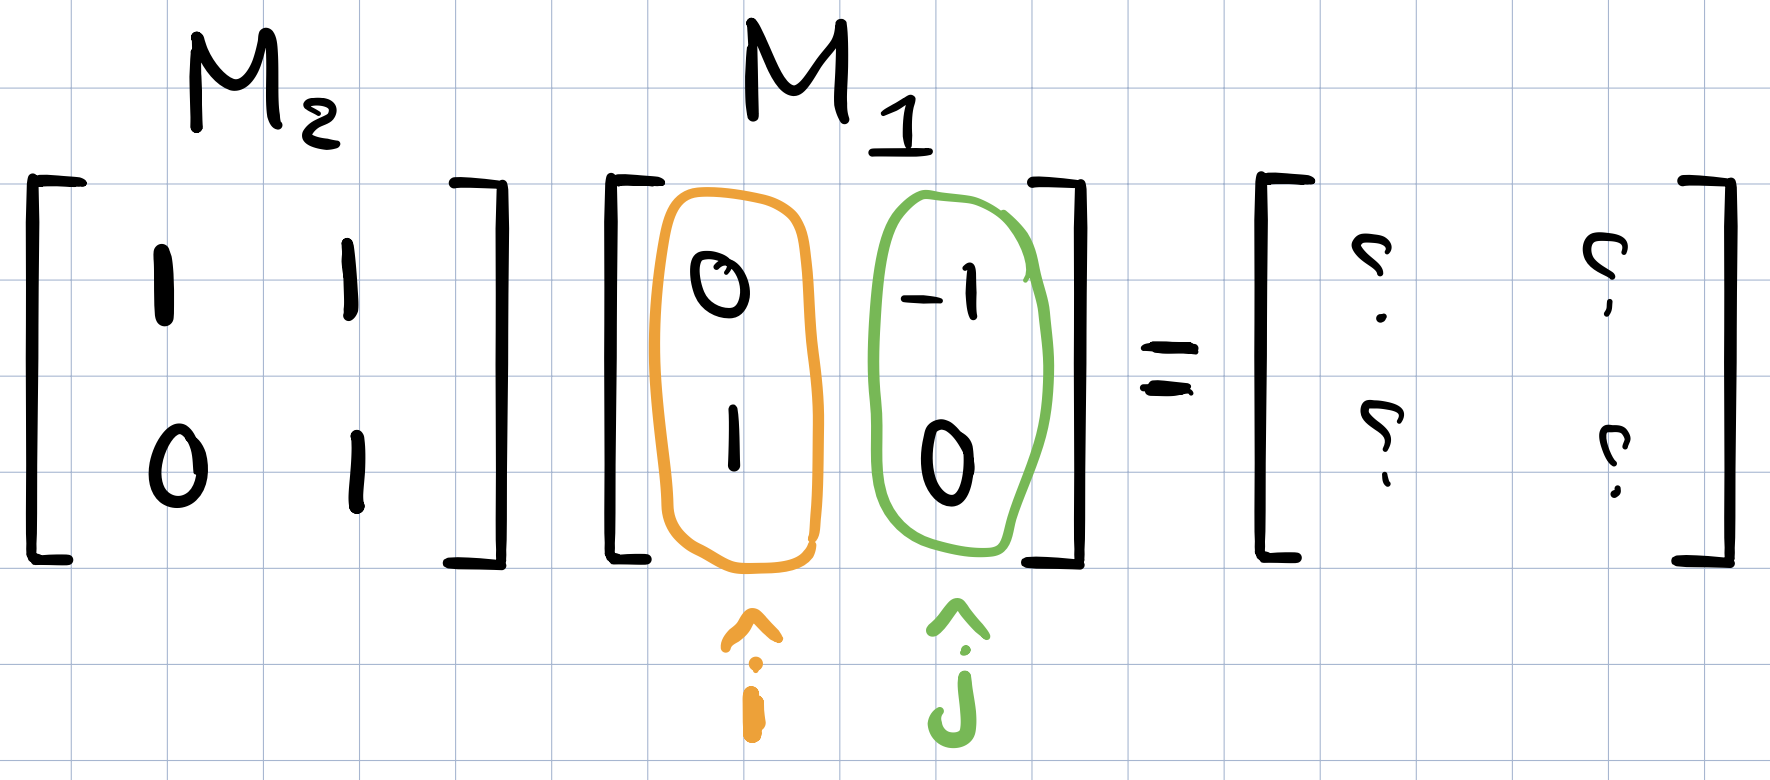 M₂ M₁
[ 1 1 ] [ 0 -1 ] = [ ? ? ]
[ 0 1 ] [ 1 0 ] [ ? ? ]
î ĵ